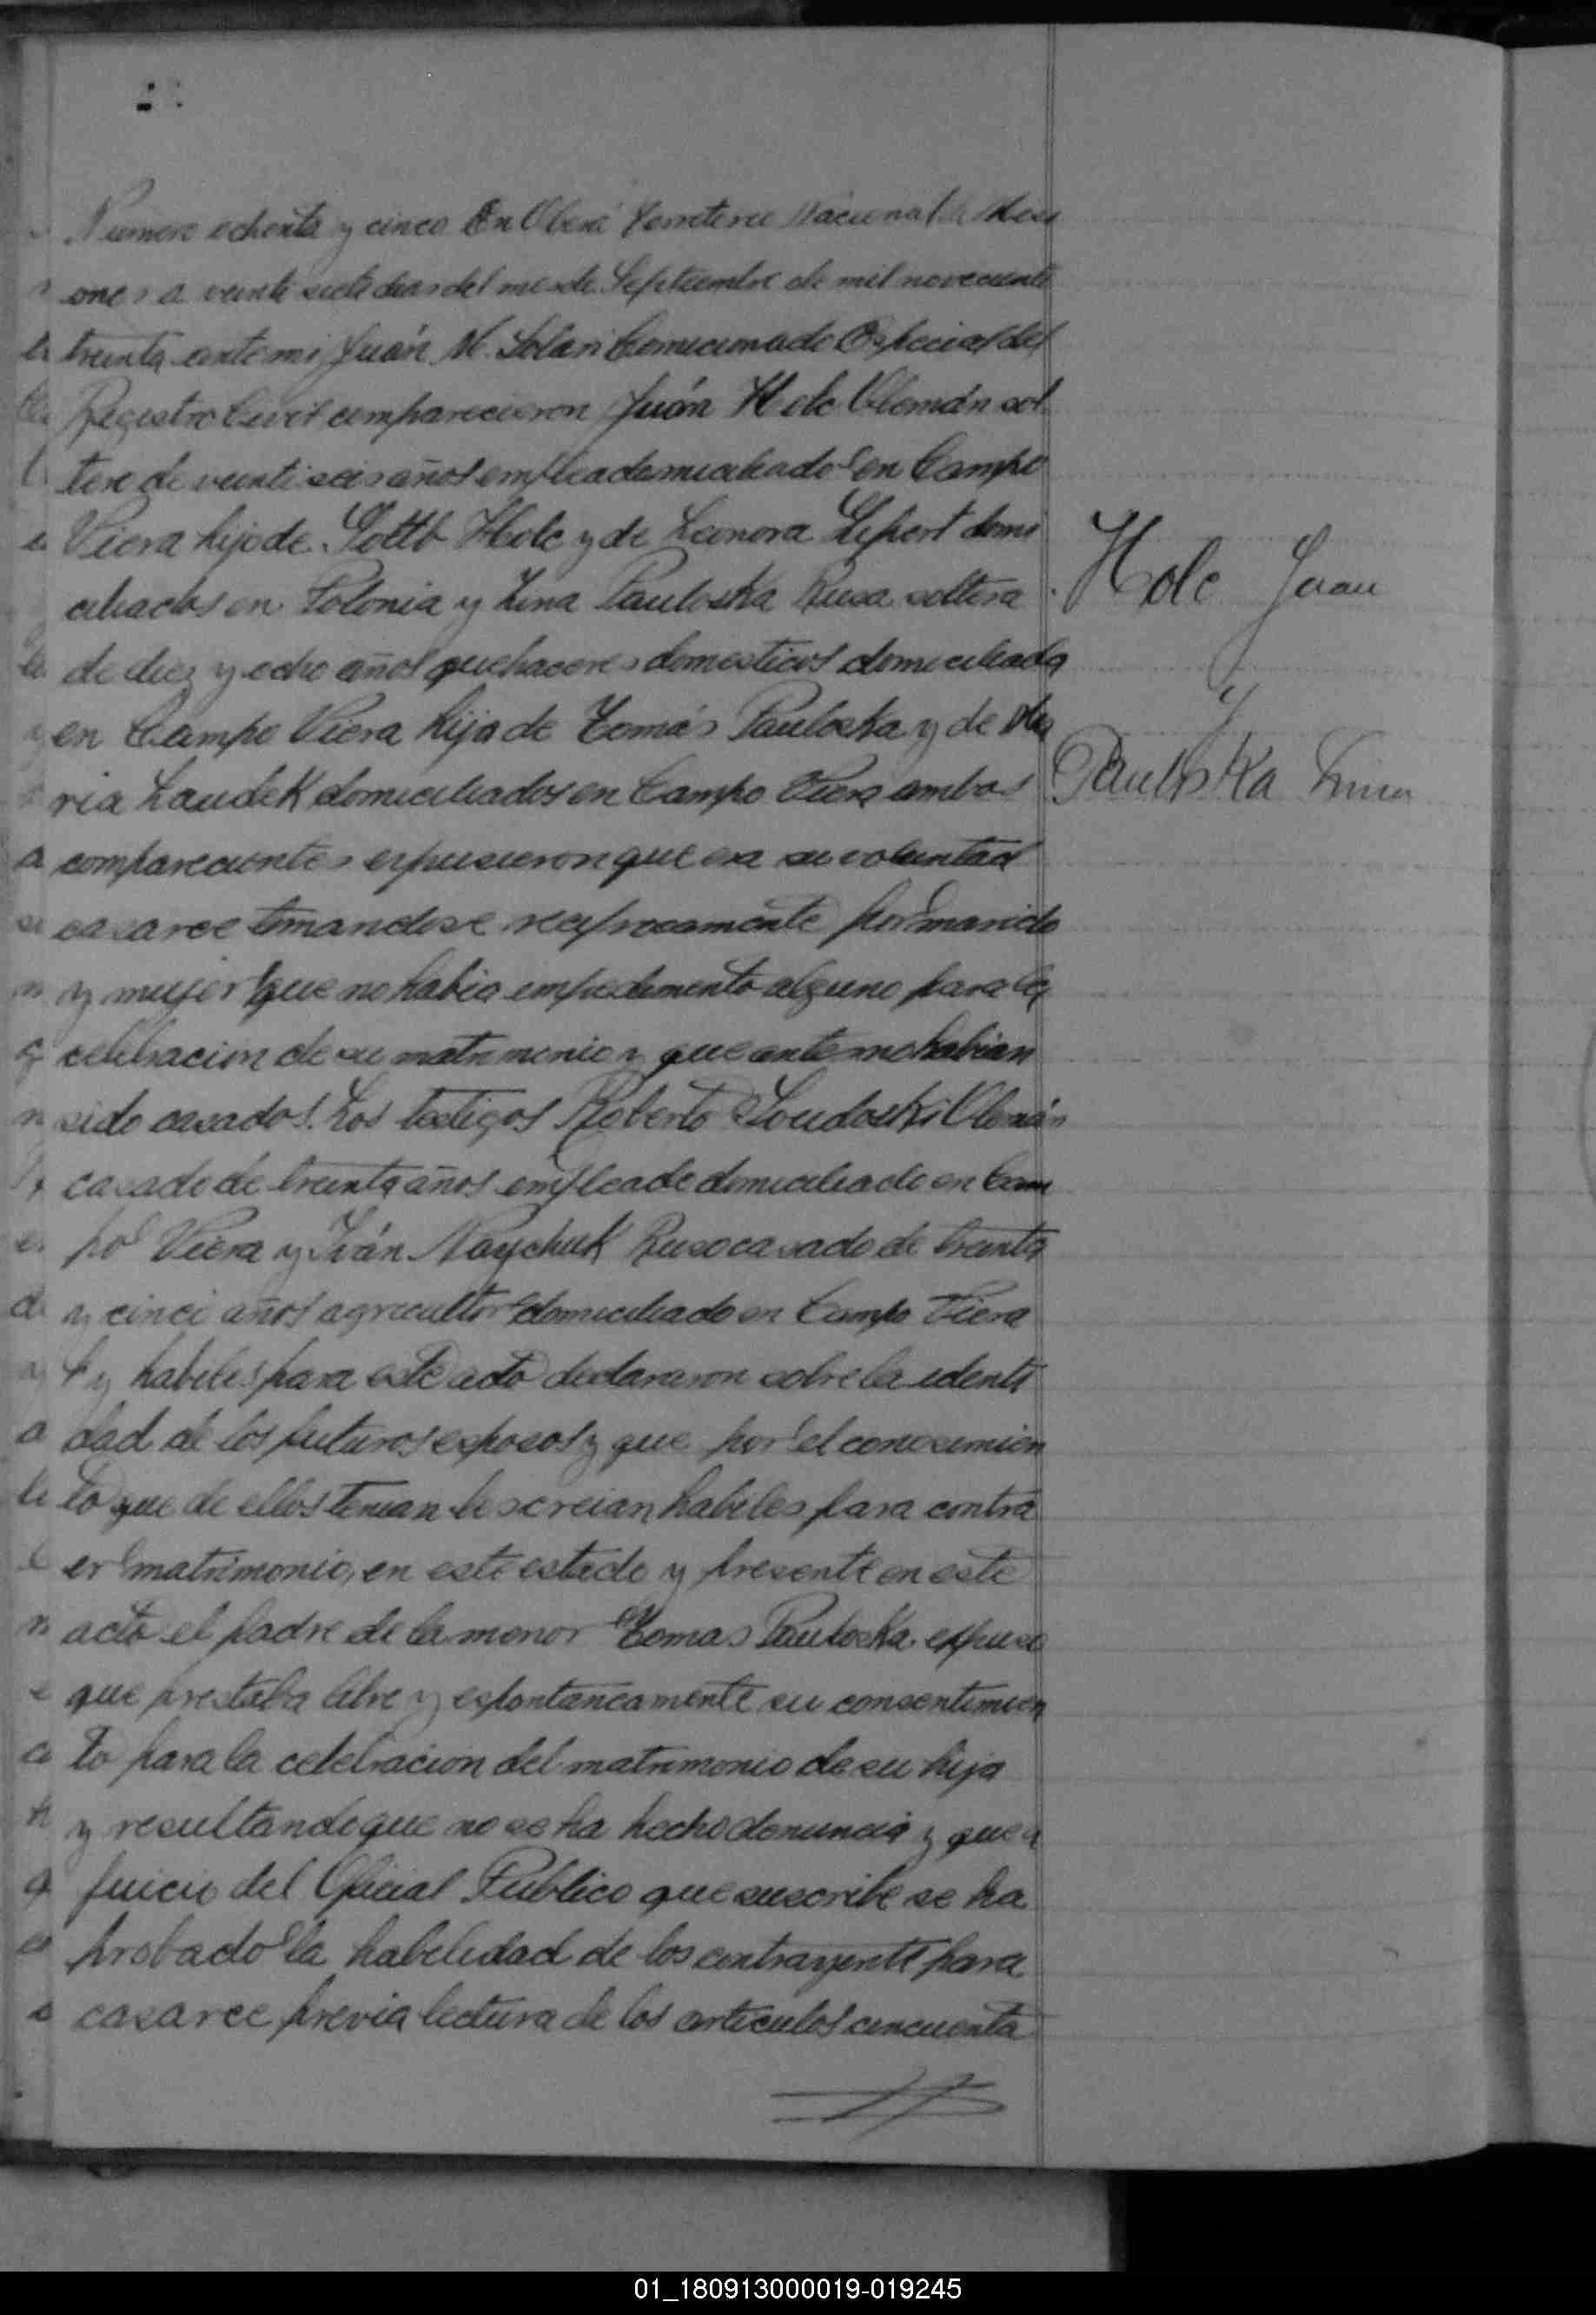 Numero ochenta y cinco En Oberá Territorio Nacional de Misi
ones a veinte siete dias del mes de Septiembre de mil novecients
treinta ante mi Juán M. Solari Comicionado Especial del
Registro Civil comparecieron Juán Holc Alemán sol
tero de veinti seis años emplea domiciliado en Campo
Viera hijo de Gottb Holc y de Leonora Lipert domi
ciliados en Polonia y Lina Pauloska Rusa soltera
de diez y ocho años quehaceres domesticos domiciliada
en Campo Viera hija de Tomás Pauloska y de Ma
ria Laudek domiciliados en Campo Viera ambos
comparecientes expusieron que era su voluntad
casarce tomandose reciprocamente por marido
y mujer que no habia impedimento alguno para la
celebracion de su matrimonio y que ante no habian
sido casados. Los testigos Roberto Soudoski Alemán
casado de treinta años empleado domiciliado en Cam
po Viera y Iván Naychuk Ruso casado de treinta
y cinci años agricultor domiciliado en Campo Viera
y habiles para este acto declararon sobre la identi
dad de los futuros esposos y que por el conosimien
to que de ellos tenian les creian habiles para contra
er matrimonio, en este estado y presente en este
acto el padre de la menor Tomas Pauloska expuso
que prestaba libre y espontaneamente su consentimien
to para la celebracion del matrimonio de su hija
y resultando que no se ha hecho denuncia y que a
juicio del Oficial Publico que suscribe se ha
probado la habilidad de los contrayente para
casarce previa lectura de los articulos cincuenta
Holc Juan
y
Pauloska Lina
01_180913000019-019245